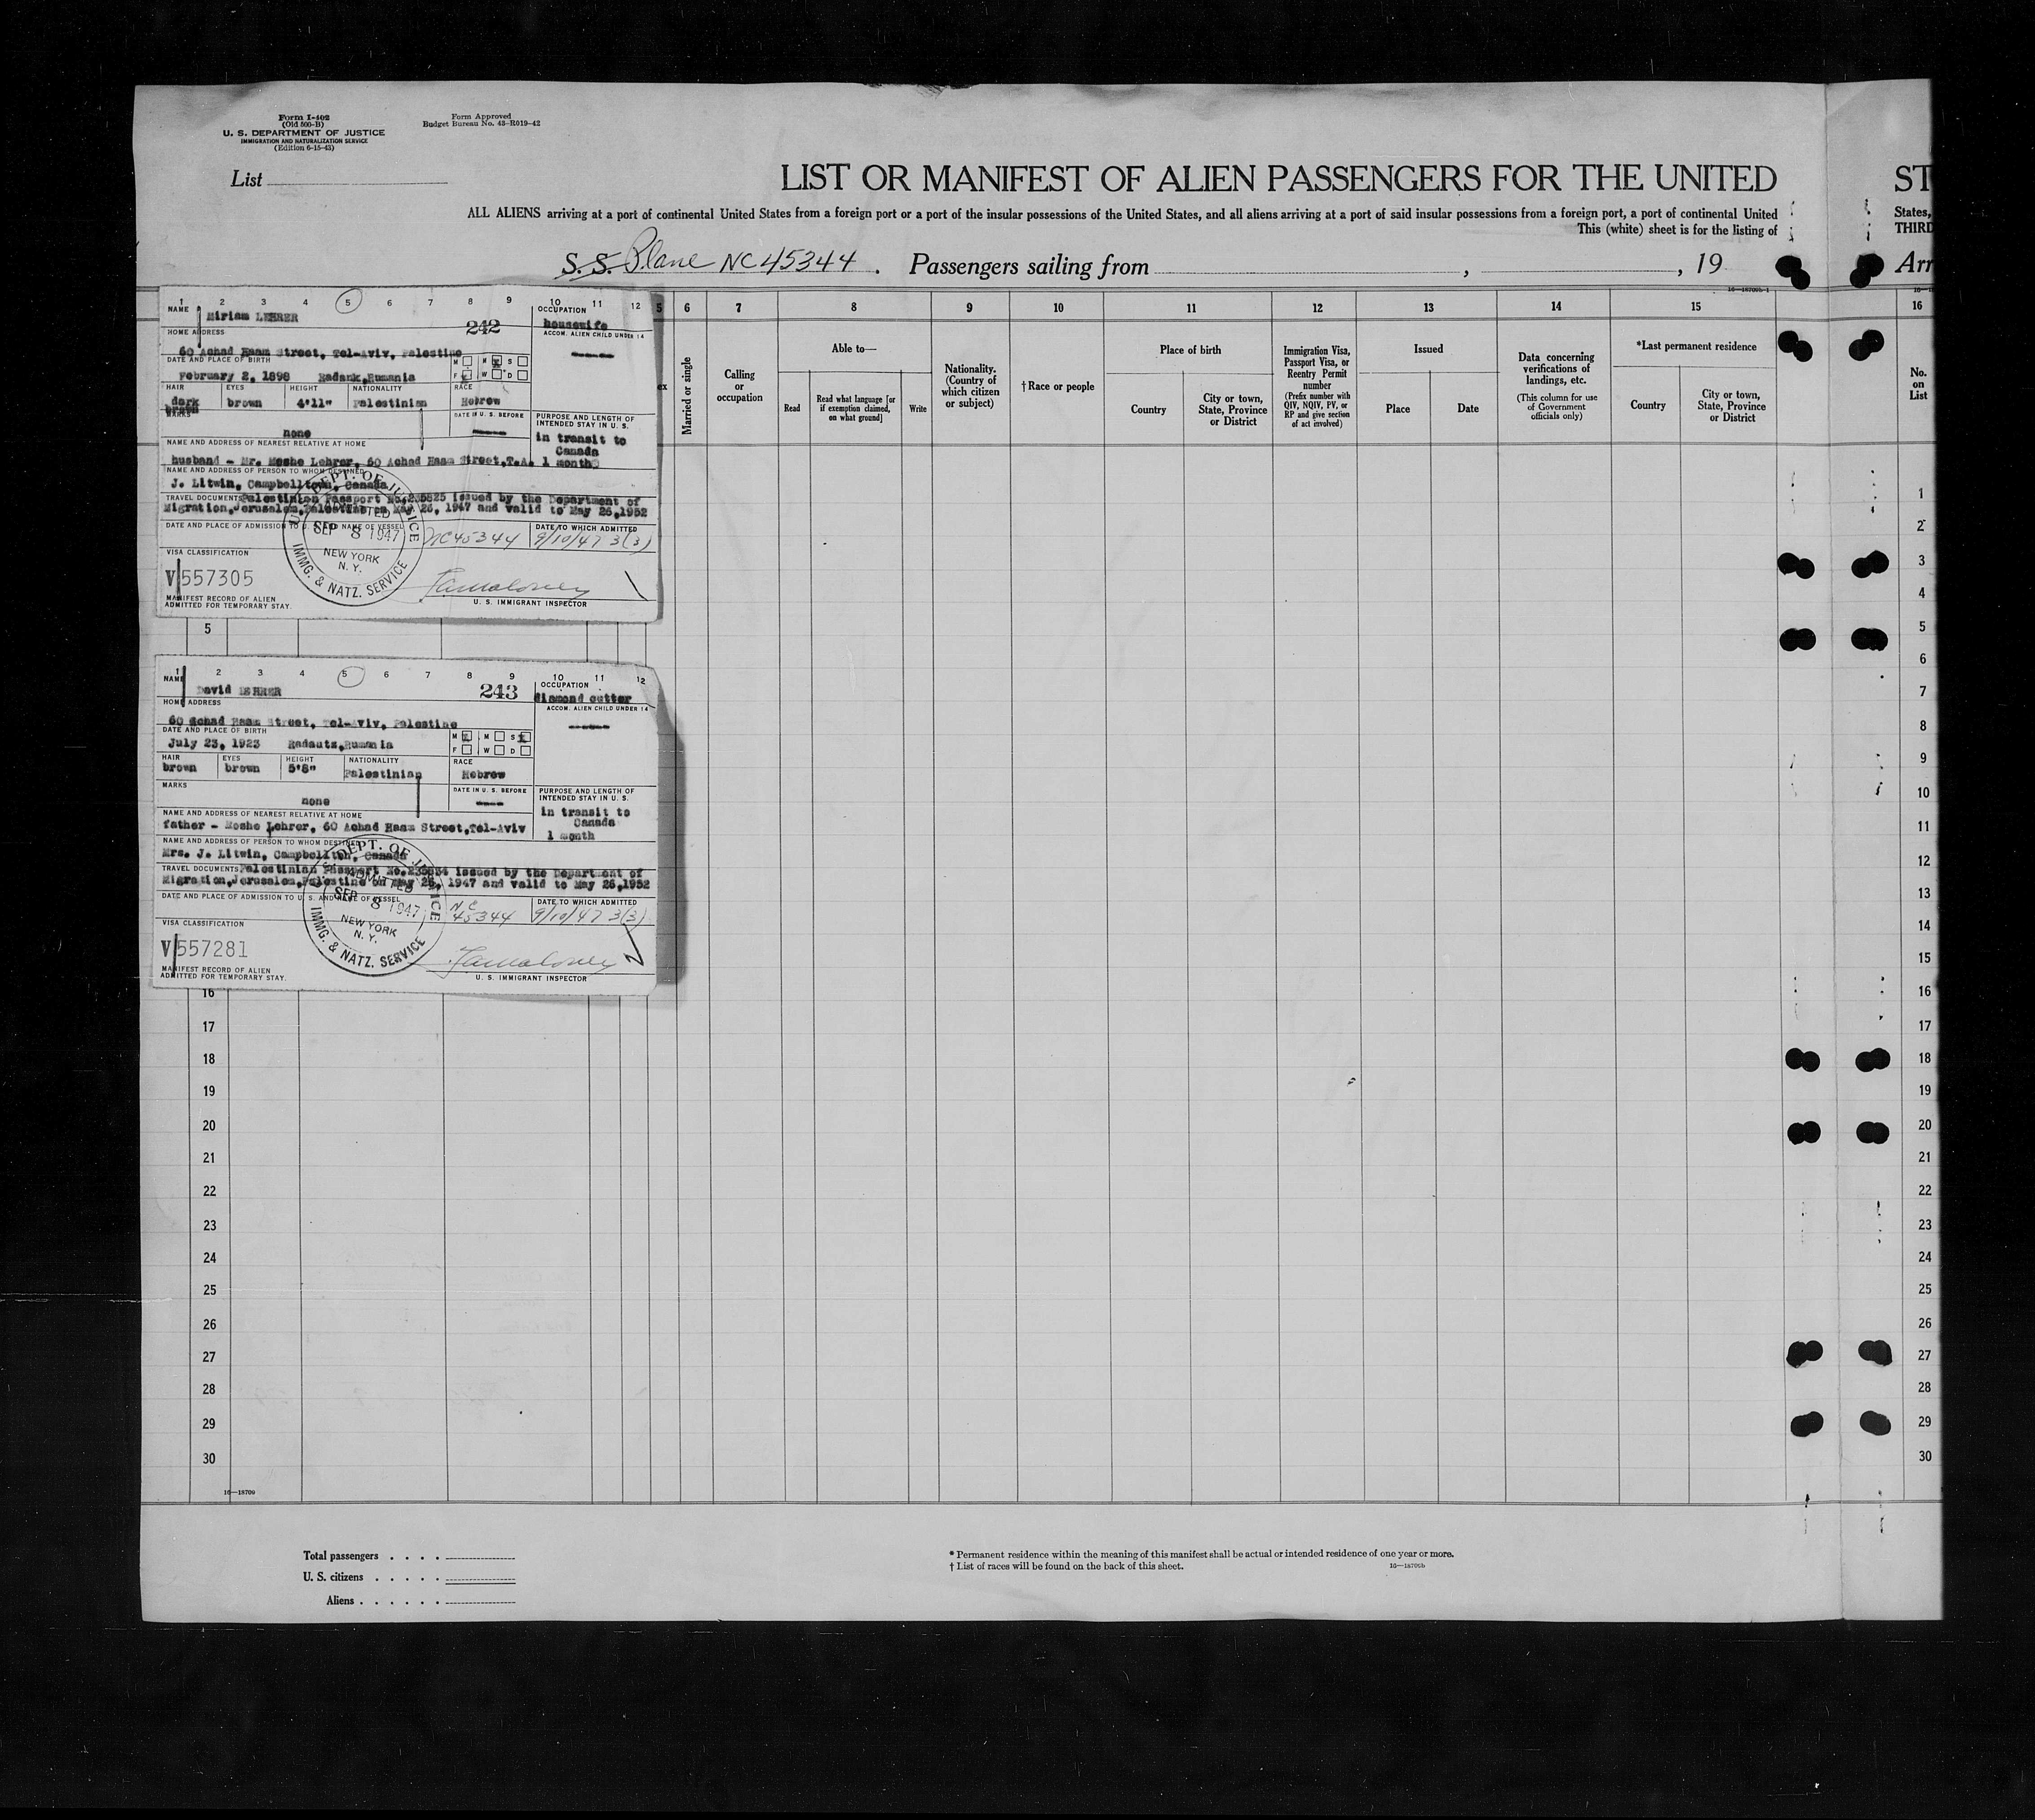 Form I-402
(Old 500-B)
U. S. DEPARTMENT OF JUSTICE
IMMIGRATION AND NATURALIZATION SERVICE
(Edition 6-15-43)
Form Approved
Budget Bureau No. 43-R019-42
List
LIST OR MANIFEST OF ALIEN PASSENGERS FOR THE UNITED
ST
ALL ALIENS arriving at a port of continental United States from a foreign port or a port of the insular possessions of the United States, and all aliens arriving at a port of said insular possessions from a foreign port, a port of continental United
States,
This (white) sheet is for the listing of
THIRD
S. S. Plane NC45344. Passengers sailing from , , 19
Arr
1 2 3 4 5 6 7 8 9 10 11 12
NAME Miriam LEHRER
242
OCCUPATION
housewife
HOME ADDRESS
ACCOM. ALIEN CHILD UNDER 14
60 Achad Haam Street, Tel-Aviv, Palestine
DATE AND PLACE OF BIRTH
M M S
F W D
February 2, 1898 Radank,Rumania
HAIR EYES HEIGHT NATIONALITY RACE
dark brown brown 4'11" Palestinian Hebrew
MARKS
DATE IN U. S. BEFORE
PURPOSE AND LENGTH OF
INTENDED STAY IN U. S.
none
in transit to
Canada
1 month
NAME AND ADDRESS OF NEAREST RELATIVE AT HOME
husband - Mr. Moshe Lehrer, 60 Achad Haam Street,T.A.
NAME AND ADDRESS OF PERSON TO WHOM DESTINED
J. Litwin, Campbelltown, Canada
TRAVEL DOCUMENTS Palestinian Passport No.235825 issued by the Department of
Migration,Jerusalem,Palestine on May 26, 1947 and valid to May 26,1952
DATE AND PLACE OF ADMISSION TO U. S. AND NAME OF VESSEL
DATE TO WHICH ADMITTED
NC45344 9/10/47 3(3)
U.S. DEPT. OF JUSTICE
ADMITTED
SEP 8 1947
NEW YORK
N. Y.
IMMG. & NATZ. SERVICE
VISA CLASSIFICATION
V 557305
MANIFEST RECORD OF ALIEN
ADMITTED FOR TEMPORARY STAY.
U. S. IMMIGRANT INSPECTOR
1 2 3 4 5 6 7 8 9 10 11 12
NAME David LEHRER
243
OCCUPATION
diamond cutter
HOME ADDRESS
ACCOM. ALIEN CHILD UNDER 14
60 Achad Haam Street, Tel-Aviv, Palestine
DATE AND PLACE OF BIRTH
M M S
F W D
July 23, 1923 Radautz,Rumania
HAIR EYES HEIGHT NATIONALITY RACE
brown brown 5'8" Palestinian Hebrew
MARKS
DATE IN U. S. BEFORE
PURPOSE AND LENGTH OF
INTENDED STAY IN U. S.
none
in transit to
Canada
1 month
NAME AND ADDRESS OF NEAREST RELATIVE AT HOME
father - Moshe Lehrer, 60 Achad Haam Street,Tel-Aviv
NAME AND ADDRESS OF PERSON TO WHOM DESTINED
Mrs. J. Litwin, Campbellton, Canada
TRAVEL DOCUMENTS Palestinian Passport No.235834 issued by the Department of
Migration,Jerusalem,Palestine on May 26, 1947 and valid to May 26,1952
DATE AND PLACE OF ADMISSION TO U. S. AND NAME OF VESSEL
DATE TO WHICH ADMITTED
NC 45344 9/10/47 3(3)
U.S. DEPT. OF JUSTICE
ADMITTED
SEP 8 1947
NEW YORK
N. Y.
IMMG. & NATZ. SERVICE
VISA CLASSIFICATION
V 557281
MANIFEST RECORD OF ALIEN
ADMITTED FOR TEMPORARY STAY.
U. S. IMMIGRANT INSPECTOR
5 6 7 8 9 10 11 12 13 14 15 16
Married or single
Calling
or
occupation
Able to—
Read
Read what language [or
if exemption claimed,
on what ground]
Write
Nationality.
(Country of
which citizen
or subject)
†Race or people
Place of birth
Country
City or town,
State, Province
or District
Immigration Visa,
Passport Visa, or
Reentry Permit
number
(Prefix number with
QIV, NQIV, PV, or
RP and give section
of act involved)
Issued
Place
Date
Data concerning
verifications of
landings, etc.
(This column for use
of Government
officials only)
*Last permanent residence
Country
City or town,
State, Province
or District
No.
on
List
1
2
3
4
5 5
6
7
8
9
10
11
12
13
14
15
16 16
17 17
18 18
19 19
20 20
21 21
22 22
23 23
24 24
25 25
26 26
27 27
28 28
29 29
30 30
16—18709
Total passengers . . . .
U. S. citizens . . . . .
Aliens . . . . . .
* Permanent residence within the meaning of this manifest shall be actual or intended residence of one year or more.
† List of races will be found on the back of this sheet.
16—18709b